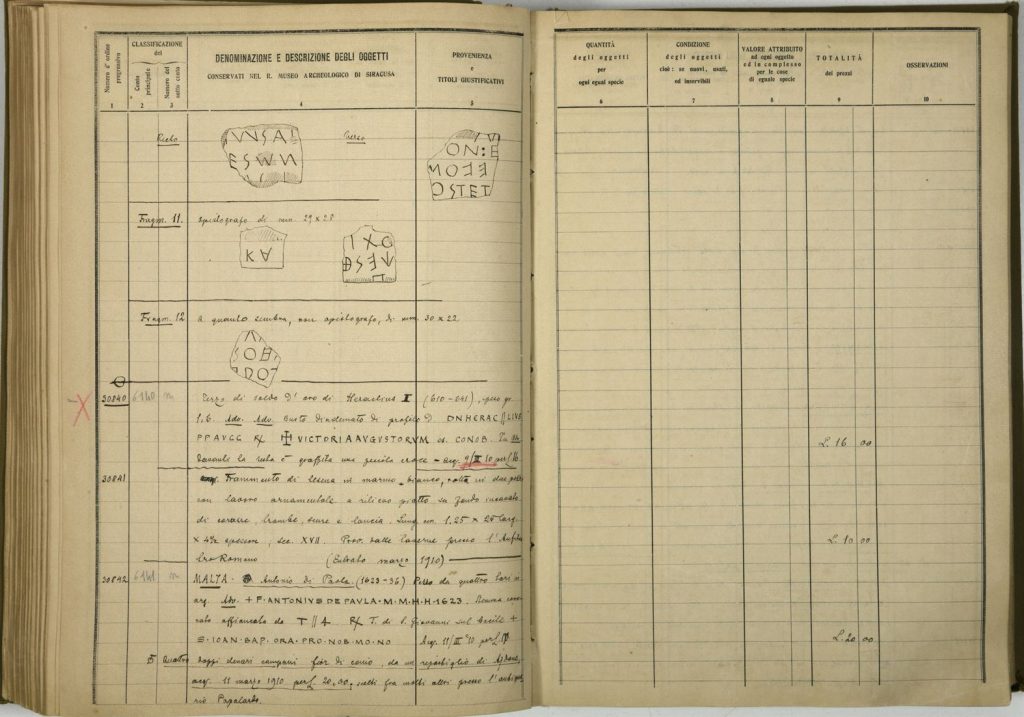 Numero d'ordine progressivo
CLASSIFICAZIONE
del
Conto principale e
Numero del sotto conto
DENOMINAZIONE E DESCRIZIONE DEGLI OGGETTI
CONSERVATI NEL R. MUSEO ARCHEOLOGICO DI SIRACUSA
PROVENIENZA
e
TITOLI GIUSTIFICATIVI
1 2 3 4 5
QUANTITÀ
degli oggetti
per
ogni egual specie
CONDIZIONE
degli oggetti
cioè: se nuovi, usati,
od inservibili
VALORE ATTRIBUITO
ad ogni oggetto
od in complesso
per le cose
di eguale specie
TOTALITÀ
dei prezzi
OSSERVAZIONI
6 7 8 9 10
Recto
Verso
ON:E
OSTET
Fragm. 11. opistografo di mm. 29 x 28
K
Fragm. 12 a quanto sembra, non opistografo, di mm. 30 x 22
OB
DO
30840 6140 m Terzo di soldo d'oro di Heraclius I (610-641), 
1,6. Adv. Adv. Busto diademato di profilo D. DN HERAC LIUS
PP AVGG ℞ VICTORIA AVGUSTORVM es. CONOB.
Davanti la testa è graffita una piccola croce - acq. 9/III 10 per £ 16
L. 16 00
30841 Frammento di lesena in marmo bianco, rotta in due pezzi
con lavoro ornamentale a rilievo piatto su fondo incavato
di corazze, trombe, scure e lancia. Lung. cm. 1,25 x 25 larg.
x 4½ spessore, sec. XVII. Prov. dalle Caserme presso l'Anfitea-
tro Romano (Entrato marzo 1910)
L. 10 00
30842 6141 m MALTA. Antonio di Paola (1623-36) Pezzo da quattro tari in
arg. Adv. + F. ANTONIVS DE PAVLA · M · M · H · H · 1623.
affiancato da T 4 ℞ T. di S. Giovanni sul bacile +
S · IOAN · BAP · ORA · PRO · NOB · Acq. 11/III 10 per £ 10
L. 20 00
5 Quattro doppi denari campani fior di conio, da un ripostiglio di
acq. 11 marzo 1910 per £ 20,00, scelti fra molti altri presso l'antiqua-
rio Papalardo.